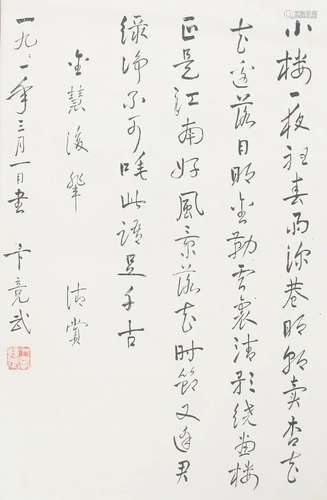 小楼一夜听春雨深巷明朝卖杏花
落日明金勒清影绕画楼
正是江南好风景落花时节又逢君
绿净不可唾此语足千古
金慧 清赏
一九一年三月一日书 卞竞武